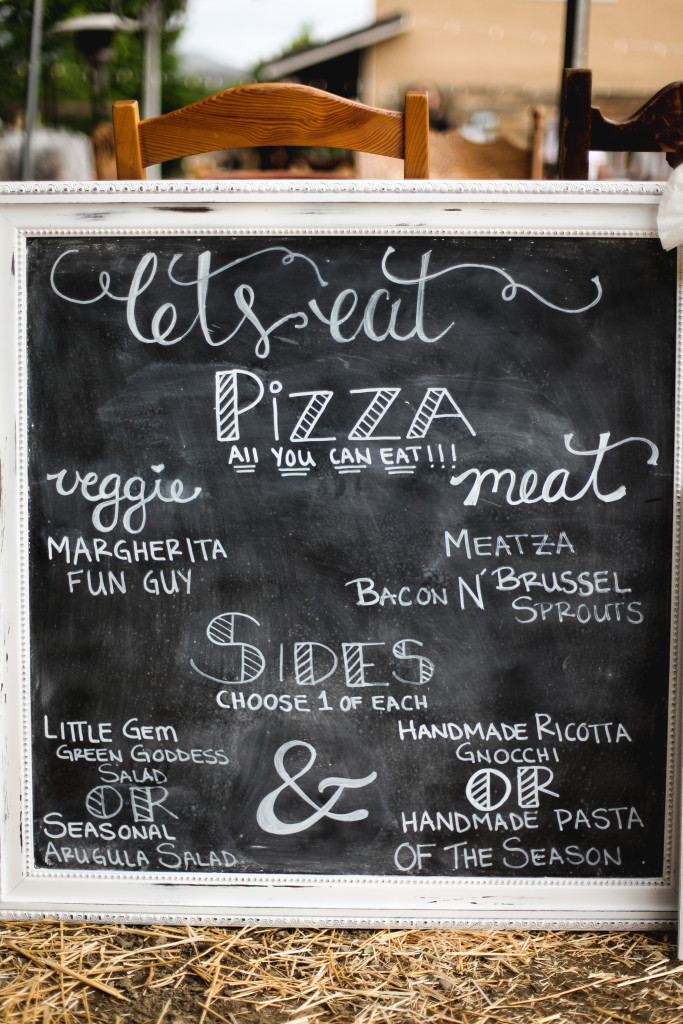 lets eat
PIZZA
All YOU CAN EAT!!!
veggie
MARGHERITA
FUN GUY
meat
MEATZA
BACON N' BRUSSEL
SPROUTS
SIDES
CHOOSE 1 OF EACH
LITTLE GEM
GREEN GODDESS
SALAD
OR
SEASONAL
ARUGULA SALAD
&
HANDMADE RICOTTA
GNOCCHI
OR
HANDMADE PASTA
OF THE SEASON